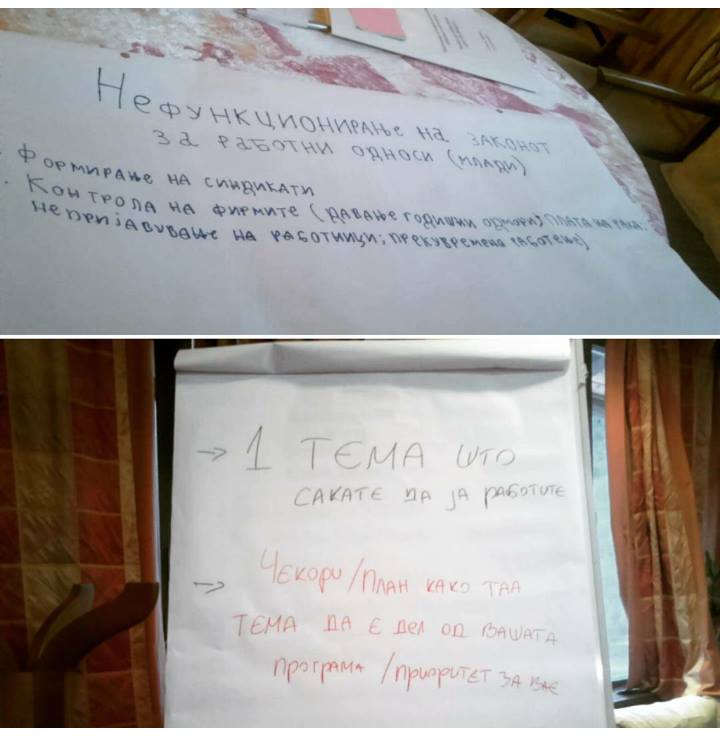 Нефункционирање на законот
за работни односи (млади)
· Формирање на синдикати
· Контрола на фирмите (давање годишни одмори; плата на рака;
непријавување на работници; прекувремена работење)
→ 1 ТЕМА ШТО
САКАТЕ ДА ЈА РАБОТИТЕ
→ Чекори/план како таа
тема да е дел од вашата
програма /приоритет за вас